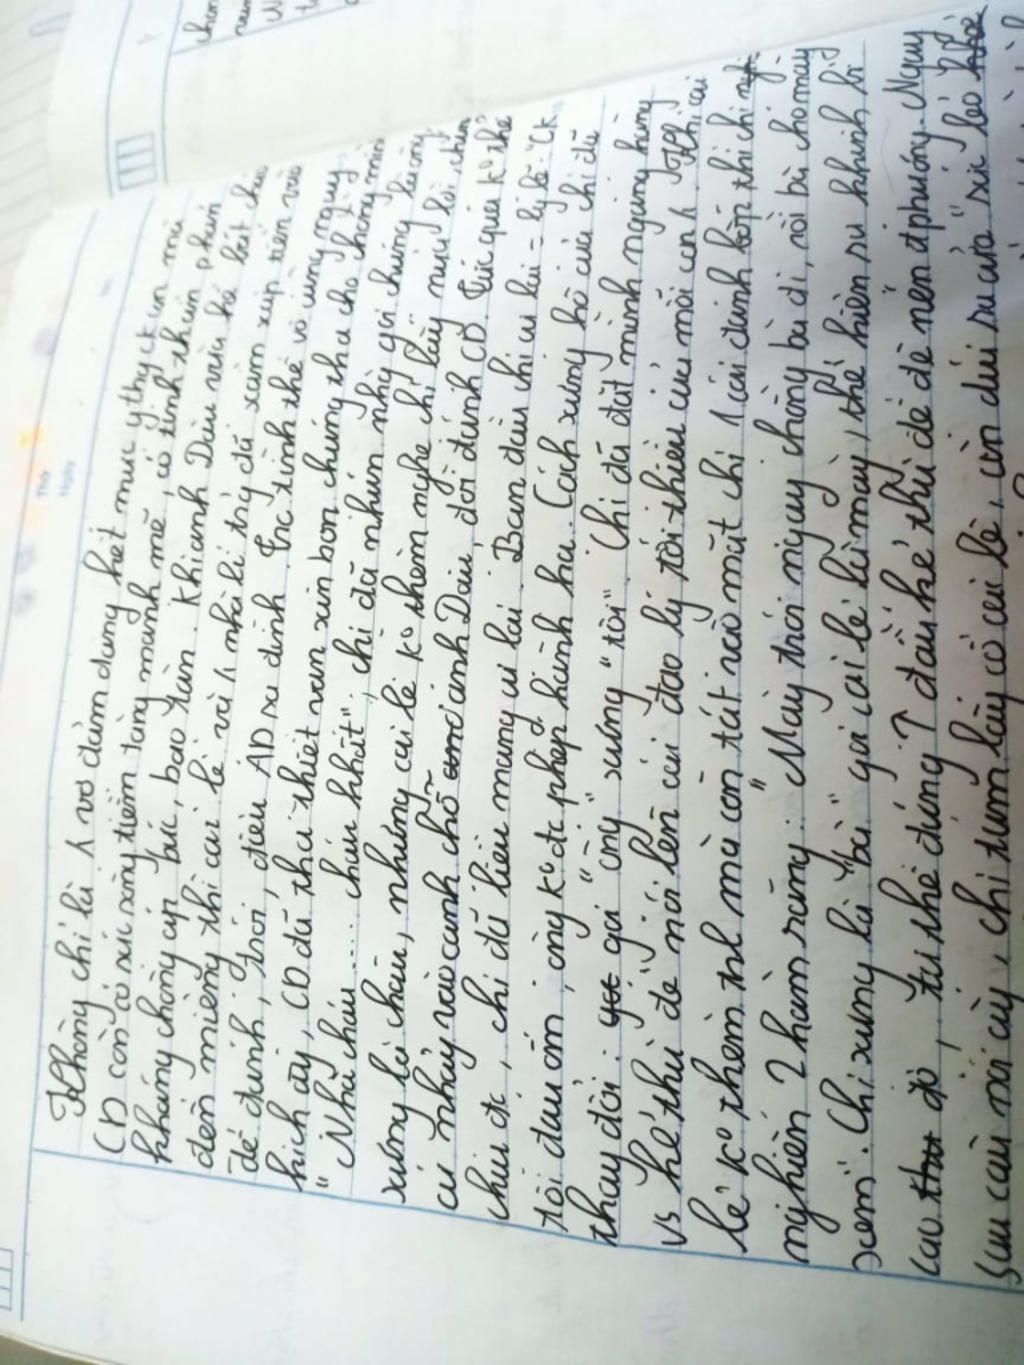 Không chỉ là 1 vợ đảm đang hết mực ythg ck con mà
CD còn có sức sống tiềm tàng mạnh mẽ, có tinh thần phản
kháng chống áp bức, bạo tàn. Khi anh Dậu vừa kề bát cháo
đến miệng thì cai lệ và ng nhà lí trg đã sầm sập tiến vào
để đánh, trói, điệu AD ra đình. Trc tình thế vô cùng nguy
kịch ấy, CD đã tha thiết van xin bọn chúng tha cho chồng mình
" Nhà cháu.... cháu khất", chị đã nhún nhg gọi chúng là ông
xưng là cháu, nhưng cai lệ k° thèm nghe chị lấy nửa lời, chúng
cứ nhảy vào cạnh chỗ anh Dậu, đòi đánh CD. Tức quá k° thể
chịu đc, chị đã liều mạng cự lại. Ban đầu chị cự lại = lý lẽ: "Ck
tôi đau ốm, ông k° đc phép hành hạ. Cách xưng hô của chị đã
thay đổi: gọi "ông" xưng "tôi". Chị đã đặt mình ngang hàng
vs kẻ thù để nói lên cái đạo lý tối thiểu của mỗi con ng. Khi cai
lệ k° thèm trl mà còn tát vào mặt chị 1 cái đánh bốp thì chị
nghiến 2 hàm răng: "Mày trói ngay chồng bà đi, rồi bà cho mày
xem". Chị xưng là "bà" gọi cai lệ là mày, thể hiện sự khinh bỉ
cao độ, tư thế đứng ↑ đầu kẻ thù đè nén áp bức.
Sau câu nói ấy, chị túm lấy cổ cai lệ, ấn dúi ra cửa "sức lẻo